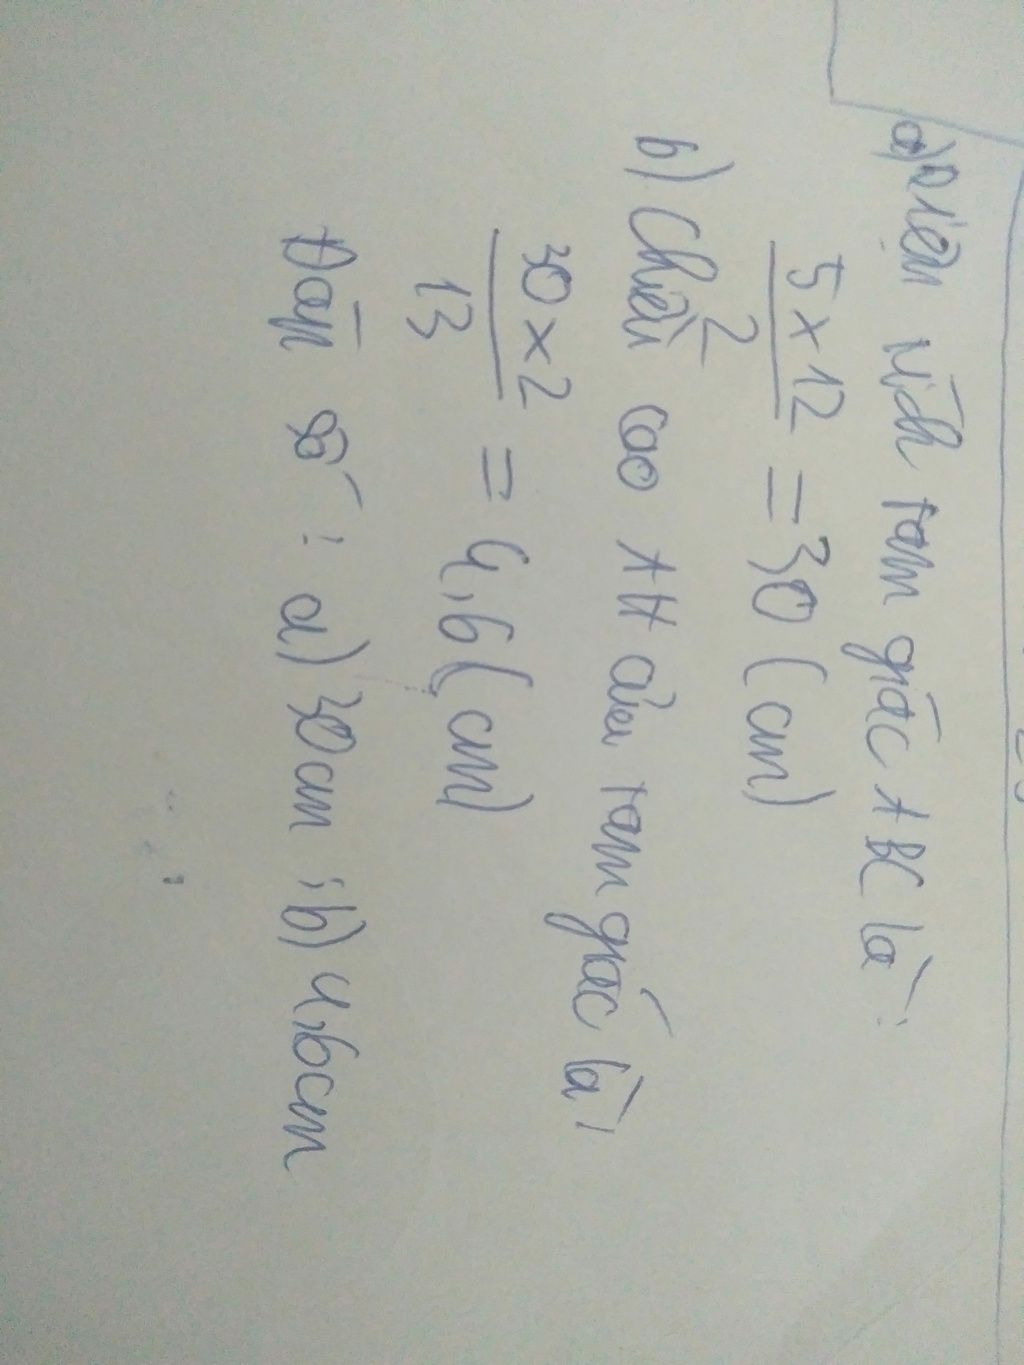 a) Diện tích tam giác ABC là:
5 x 12
2
= 30 (cm)
b) Chiều cao AH của tam giác là:
30 x 2
13
= 4,6 (cm)
Đáp số: a) 30cm ; b) 4,6cm